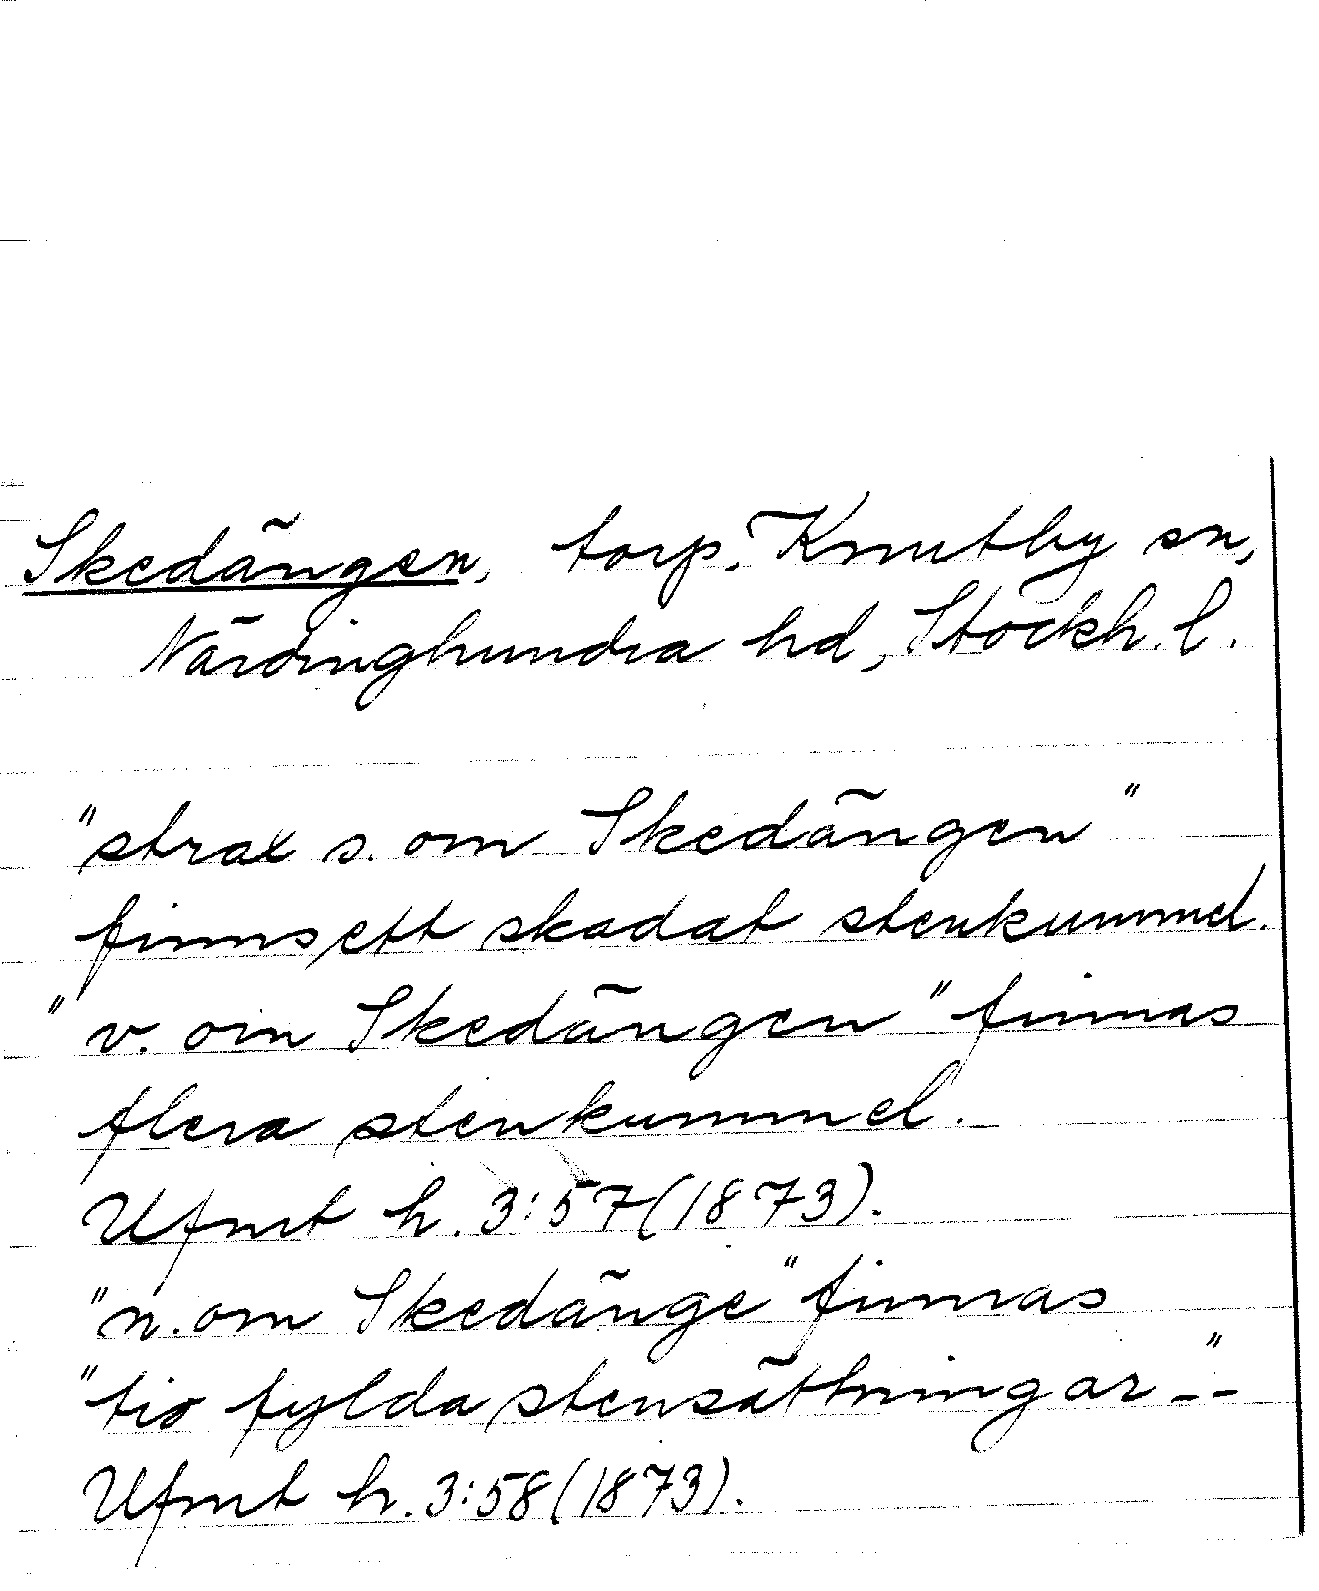 Skedängen, torp, Knutby sn,
Närdinghundra hd, Stockh. l.
"strax s. om Skedängen"
finns ett skadat stenkummel.
"v. om Skedängen" finnas
flera stenkummel.
Ufmt h. 3:57 (1873).
"n. om Skedänge" finnas
"tio fylda stensättningar --"
Ufmt h. 3:58 (1873).